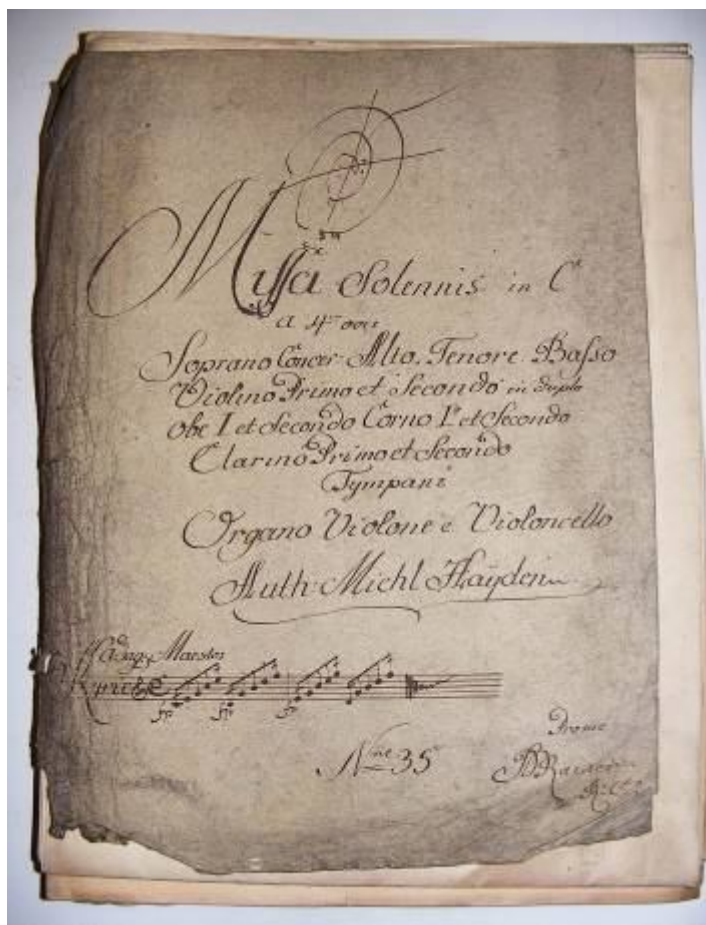 Missa Solennis in C
a 4 voci
Soprano Concer: Alto. Tenore. Basso
Violino Primo et Secondo in duplo
obe I et Secondo Corno 1º et Secondo
Clarino Primo et Secondo
Tympani
Organo Violone e Violoncello
Auth: Michl Hayden
Adag. Maestos
N 35